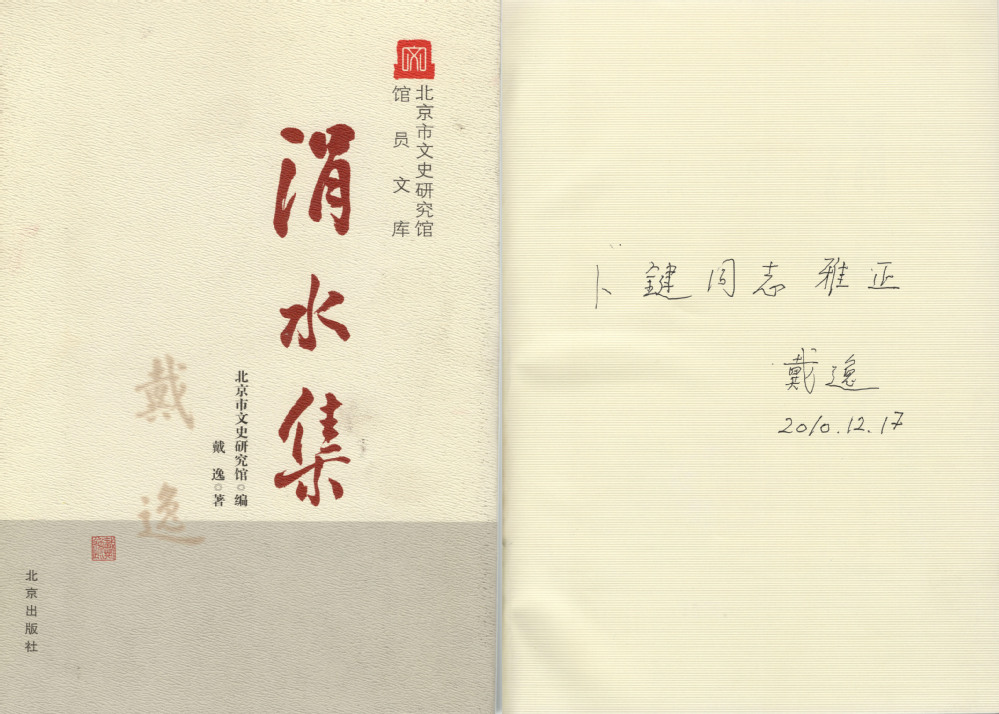 北京市文史研究馆
馆员文库
涓水集
北京市文史研究馆○编
戴逸○著
戴逸
北京出版社
卜鍵同志雅正
戴逸
2010.12.17